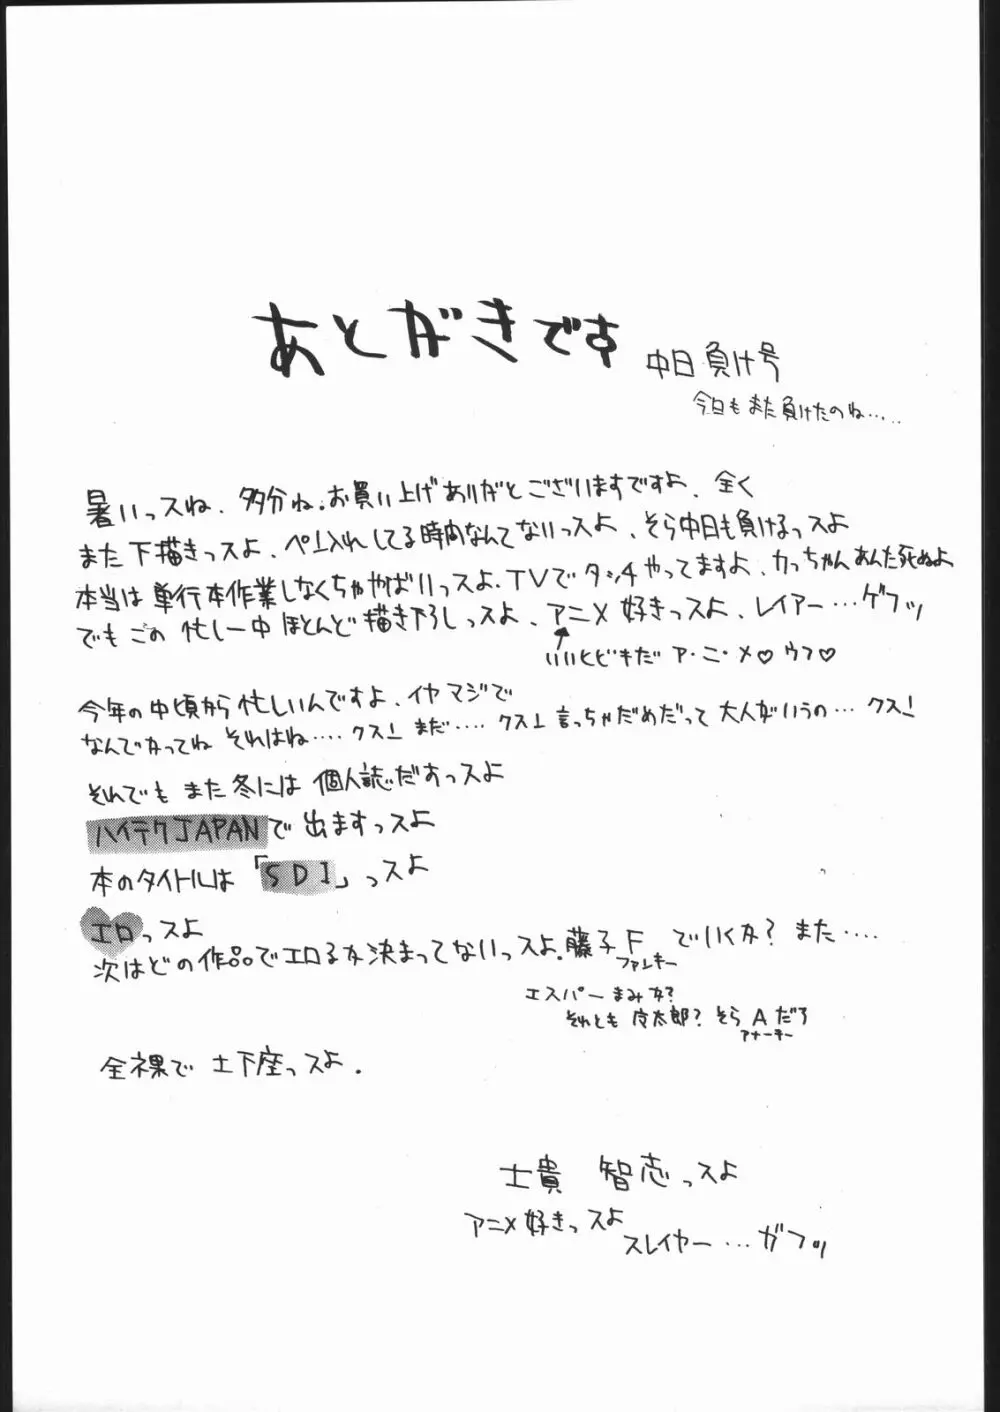 あとがきです
中日負け号
今日もまた負けたのね……
暑いっスね、多分ね。お買い上げありがとございますですよ、全く
また下描きっスよ、ペン入れしてる時間なんてないっスよ、そら中日も負けるっスよ
本当は単行本作業しなくちゃやばいっスよ。TVでタッチやってますよ、カっちゃんあんた死ぬよ
でもこの忙し一中ほとんど描き下ろしっスよ、アニメ好きっスよ、レイアー…ゲフッ
いいヒビキだ ア・ニ・メ♡ウフ♡
今年の中頃から忙しいんですよ、イヤマジで
なんでかってね それはね…‥クスッ まだ…‥ クスッ 言っちゃだめだって大人がいうの… クスッ
それでもまた冬には個人誌だすっスよ
ハイテクJAPANで出ますっスよ
本のタイトルは「SDI」っスよ
エロっスよ
次はどの作品でエロるか決まってないっスよ。藤子Fでいくか？また…‥
ファンキー
エスパーまみか？
それとも 太郎？そらAだろ
アナーキー
全裸で土下座っスよ．
士貴 智志っスよ
アニメ好きっスよ
スレイヤー…ガフッ